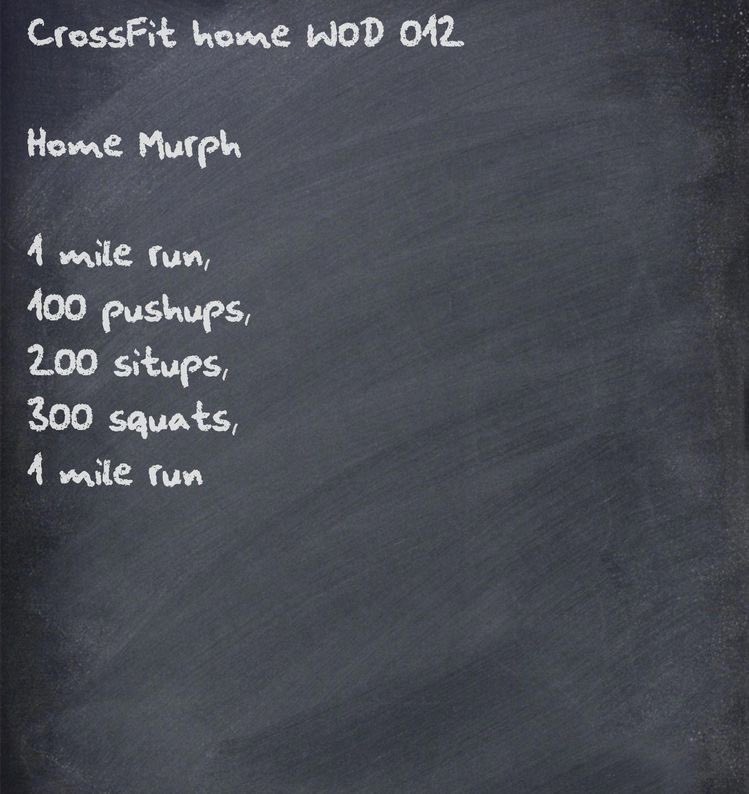 CrossFit home WOD 012
Home Murph
1 mile run,
100 pushups,
200 situps,
300 squats,
1 mile run